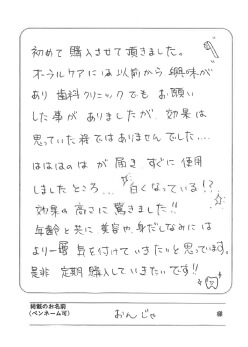 初めて購入させて頂きました。
オーラルケアには以前から興味が
あり歯科クリニックでもお願い
した事がありましたが、効果は
思っていた程ではありませんでした…
はははのはが届きすぐに使用
しましたところ…白くなっている!?
効果の高さに驚きました!!
年齢と共に美容や身だしなみには
より一層気を付けていきたいと思っています。
是非定期購入していきたいです!!
掲載のお名前
(ペンネーム可)
おんじゃ
様